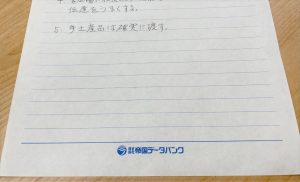 伝達をうまくする。
5. 手土産品は確実に渡す。
株式会社帝国データバンク